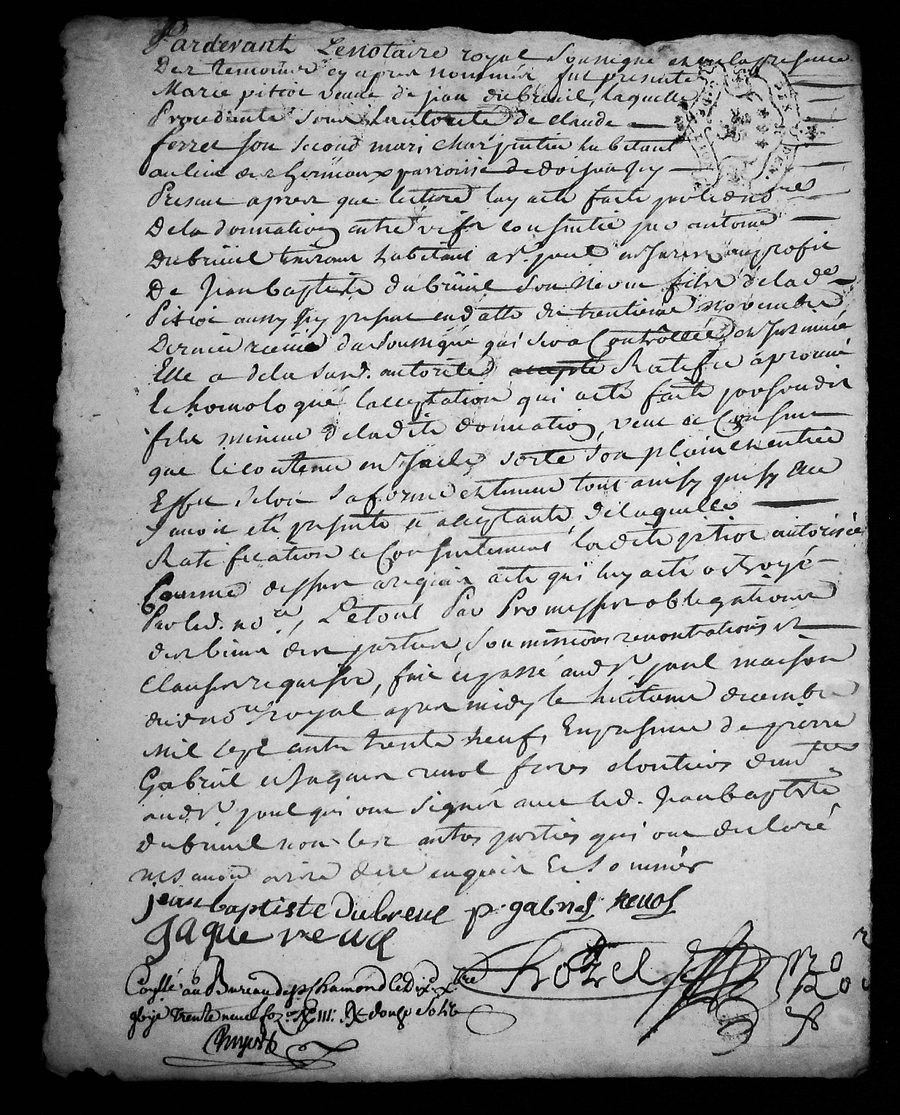 Pardevant Lenotaire royal Soussigné et en la presence
Des temoins cy apres nommés fut presente
Marie pitiot veuve de jean dubreuil, laquelle
Procedante sous Lautorité de claude
ferret son second mari charpentier habitant
au lieu des hermeaux parroisse de
Presant apres que lecture luy a eté faite par led. nore
De la donnation entre vifs consentie par antoine
Dubreuil habitant a st. paul en Jarest au profit
De Jean baptiste dubreuil Son neveu fils de lade
Pitiot aussy icy present en datte du trentieme novembre
Dernier receue du Soussigné qui sera Controllée et insinuée
Elle a de la susd. autorité accepté Ratifié aprouvé
Et homologué Lacceptation qui a eté faite par sondit
fils mineur de ladite donnation, veut et Consent
que le contenu en icelle sorte son plain et entier
Effet selon sa forme et teneur tout ainsy que sy elle
y avoit eté presente et acceptante de laquelle
Ratification et Consentement ladite pitiot autorisée
Comme dessus a requis acte qui luy a eté octroyé
Par led. nore, Letout Par Promesses obligations
des biens des parties, Soumissions renontiations et
Clauses requises, fait et passé aud. st. paul maison
dud. nore royal apres midy le huitieme decembre
mil sept cents trente neuf, En presence de pierre
Gabriel et Jaques renol freres cloutiers demts
aud. st. paul qui ont signé avec led. Jean baptiste
dubreuil non les autres parties qui ont declaré
ne sçavoir ecrire de ce enquis Et Sommés
jean baptiste dubreul p. gabriel renol
Jaque renol
Conllé au Bureau de st. chamond le Dix Xbre
trente neuf fo. douze sols